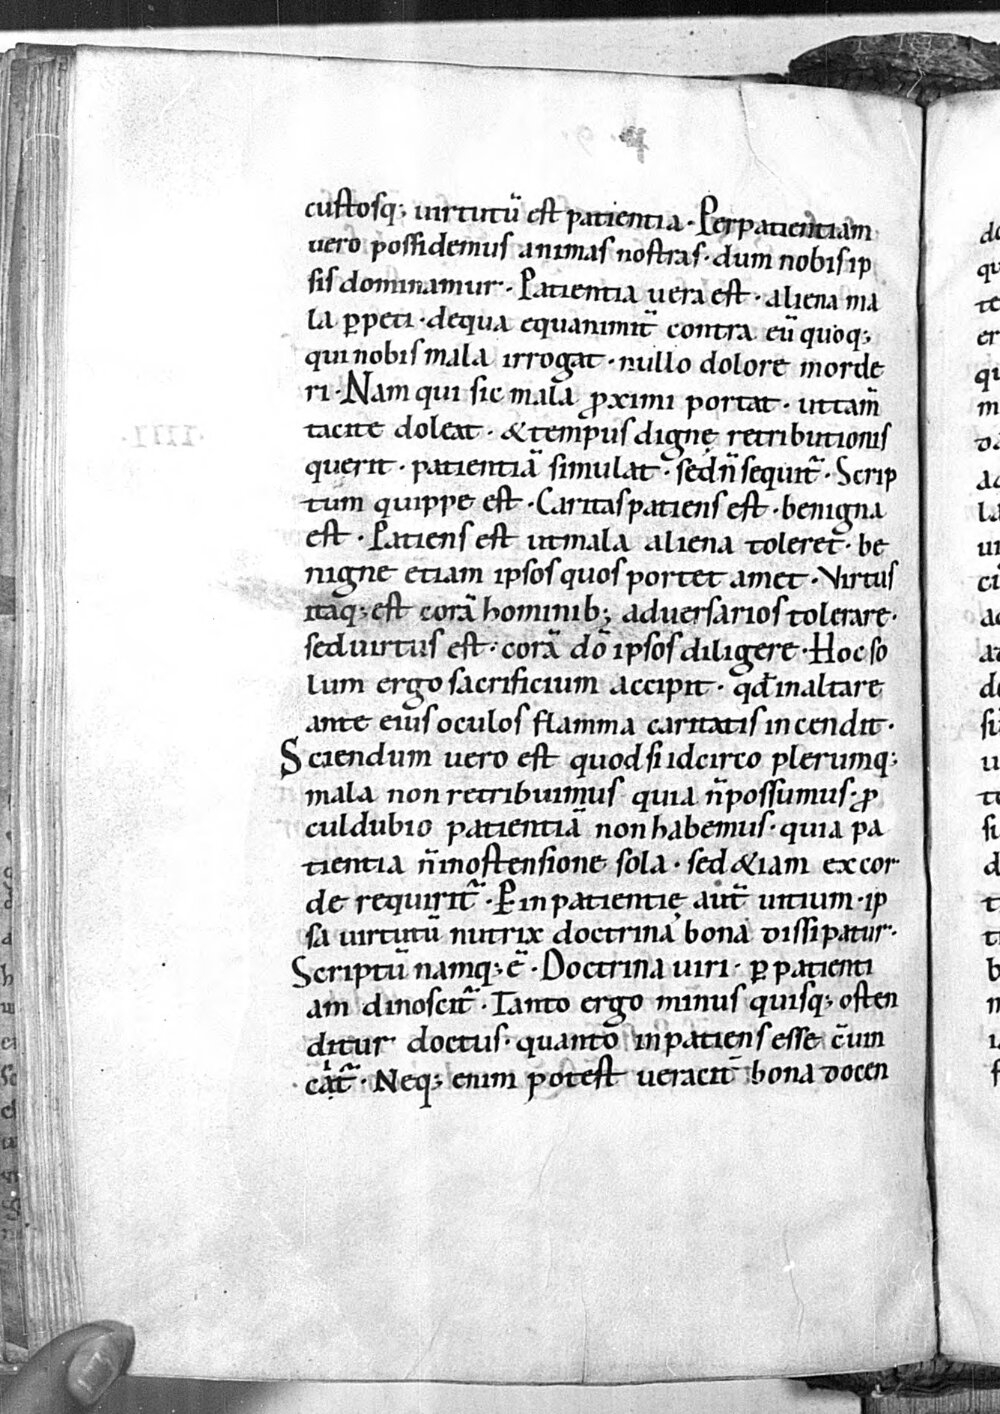 custosq; uirtutū est patientia · Per patientiam
uero possidemus animas nostras · dum nobis ip
sis dominamur · Patientia uera est · aliena ma
la ꝑpeti · dequa equanimit̄ contra eū quoq;
qui nobis mala irrogat · nullo dolore morde
ri · Nam qui sic mala ꝓximi portat · uttam̄
tacite doleat · & tempus dignę retributionis
querit · patientiā simulat · sed n̄ sequit̄ · Scrip
tum quippe est · Caritas patiens est · benigna
est · Patiens est ut mala aliena toleret · be
nigne etiam ipsos quos portet amet · Virtus
itaq; est corā hominib; aduersarios tolerare ·
sed uirtus est · corā dō ipsos diligere · Hoc so
lum ergo sacrificium accipit · qđ in altare
ante eius oculos flamma caritatis incendit ·
Sciendum uero est quod si idcirco plerumq;
mala non retribuimus quia n̄ possumus · ꝓ
culdubio patientiā non habemus · quia pa
tientia n̄ in ostensione sola · sed &iam ex cor
de requirit̄ · P inpatientię aut̄ uitium · ip
sa uirtutū nutrix doctrina bona dissipatur ·
Scriptū namq; ē · Doctrina uiri · ꝑ patienti
am dinoscit̄ · Tanto ergo minus quisq; osten
ditur doctus · quanto inpatiens esse c̄um
cat̄ · Neq; enim potest ueracit̄ bona docen